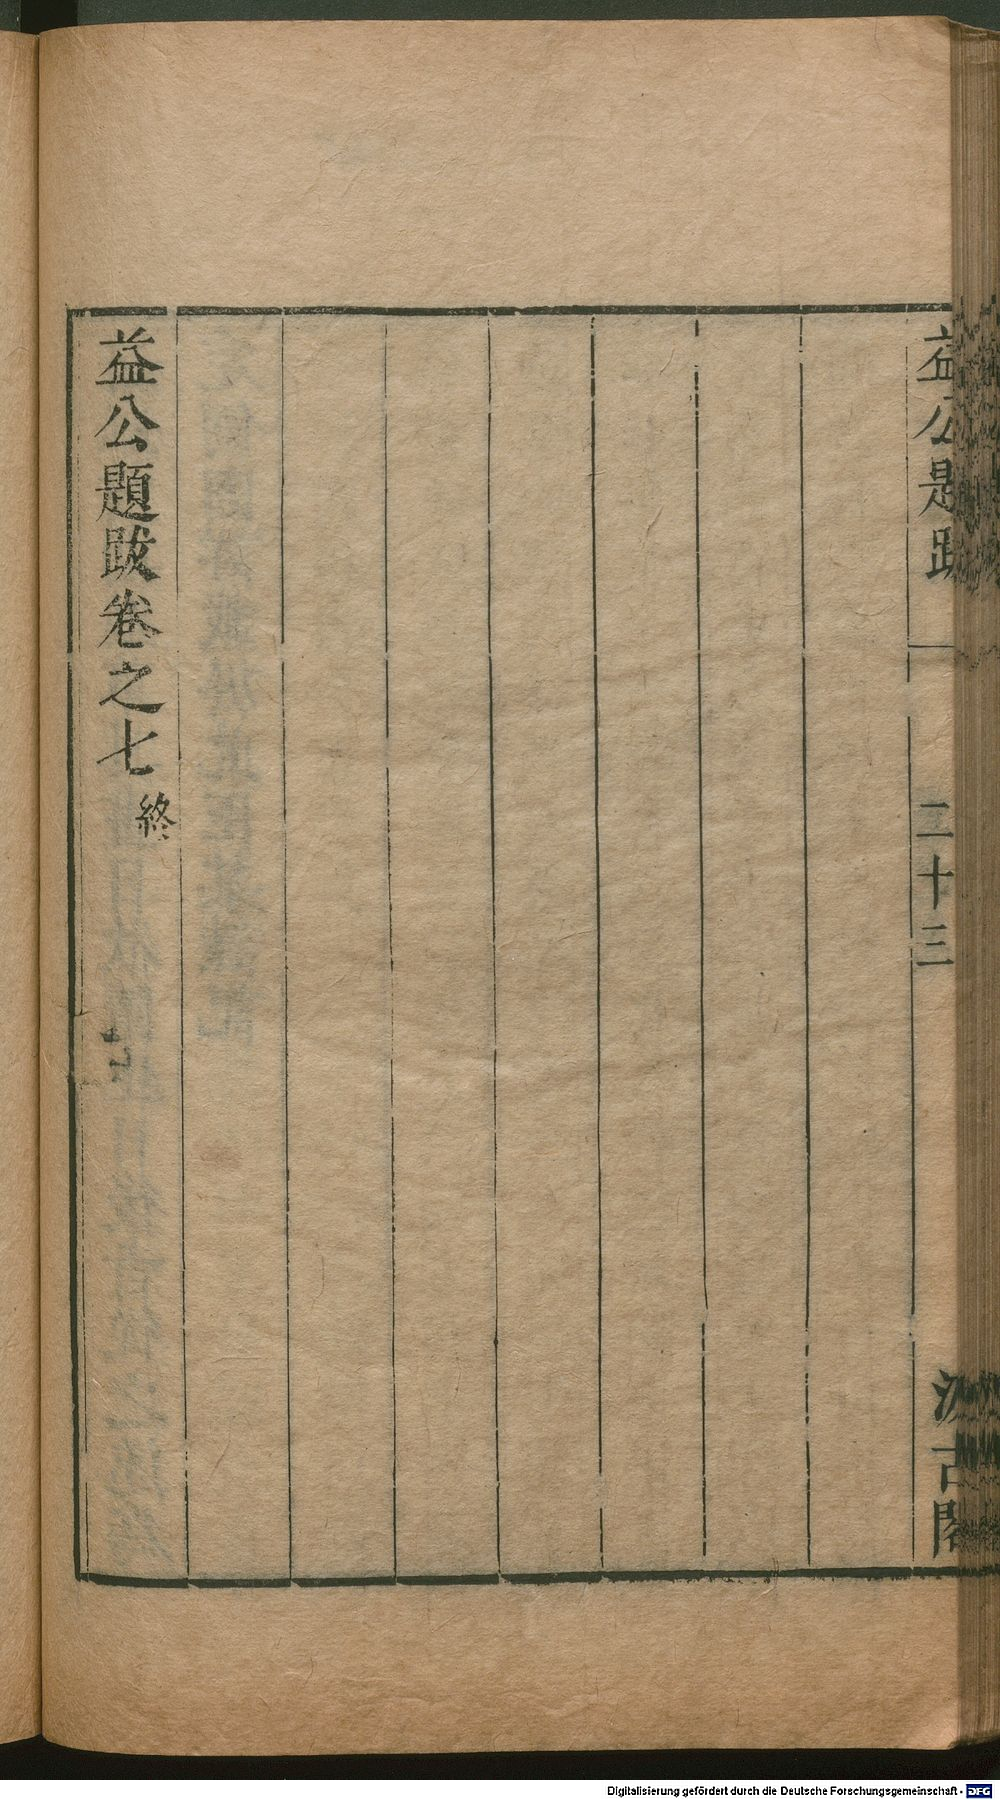 益公題跋
二十三
汲古閣
益公題跋卷之七終
Digitalisierung gefördert durch die Deutsche Forschungsgemeinschaft - DFG